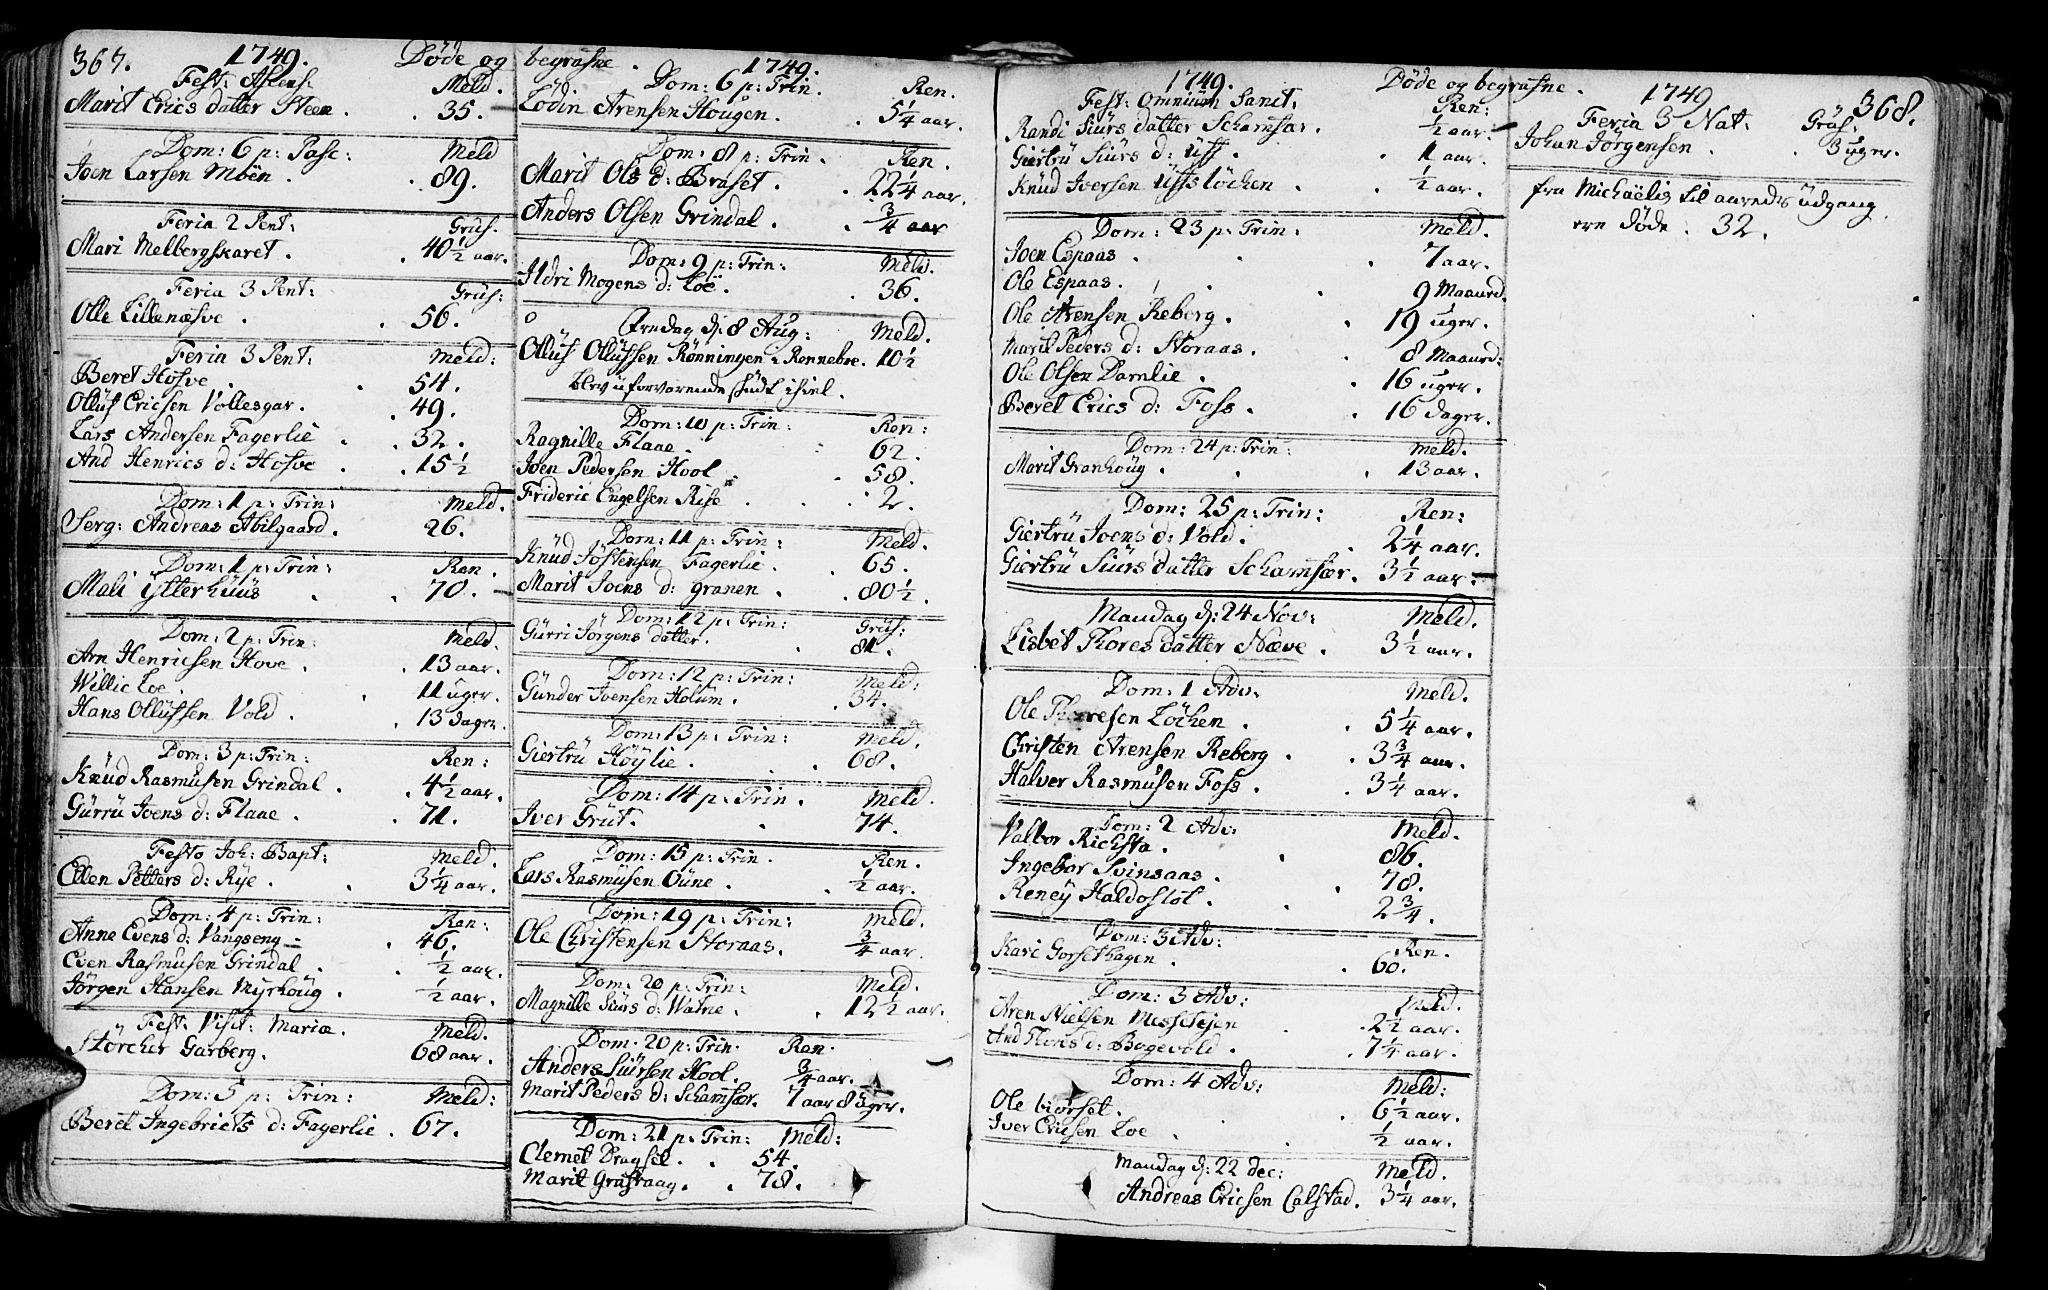 367. 1749. Døde og begrafne. 1749.
Fest: Ascens: Meld.
Marit Erics datter Steen . . 35.
Dom: 6 p: Pasc: Meld
Joen Larsen Moen . . 89.
Feria 2 Pent: Grüf.
Mari Melbergskaret . . 40 1/2 aar.
Feria 3 Pent: Grüf:
Olle Lillenæsve . . 56.
Feria 3 Pent: Meld:
Beret Hofve . . 54.
Ollüf Ericsen Vollesgar . . 49.
Lars Andersen Fagerlie . . 32.
And Henrics d: Hofve . . 15 1/2
Dom: 1 p: Trin: Meld.
Serg: Andreas Abilgaard . 26.
Dom: 1 p: Trin: Ren.
Mali Ytterhüüs . . 70.
Dom: 2 p: Trin: Meld.
Arn Henricsen Hove . . 13 aar.
Willic Loe . . 11 uger.
Hans Ollüfsen Vold . . 13 dager.
Dom: 3 p: Trin: Ren:
Knüd Rasmusen Grindal . . 4 1/2 aar.
Gürrü Joens d: Flaae . . 71.
Festo Joh: Bapt: Meld.
Ellen Petters d: Rye . . 3 1/4 aar.
Dom: 4 p: Trin: Ren:
Anne Evens d: Vangseng . 46.
Even Rasmusen Grindal . . 1/2 aar.
Jörgen Hansen Myrhoüg . 1/2 aar.
Fest: Visit: Mariæ. Meld.
Störcher Garberg. 68 aar.
Dom: 5 p: Trin: Meld:
Beret Ingebricts d: Fagerlie . 67.
Dom: 6 p: Trin. Ren.
Lodin Arensen Hougen . . 5 1/4 aar.
Dom: 8 p: Trin. Ren.
Marit Ols d: Bräset . . 22 1/4 aar.
Anders Olsen Grindal . . 3/4 aar
Dom: 9 p: Trin: Meld.
Ildri Mogens d: Loe . . 36.
Fredag d: 8 Aug: Meld.
Ollüf Ollüfsen Rönningen i Rennebue. 10 1/2
blev uforvarende skudt ihiel.
Dom: 10 p: Trin: Ren:
Ragnille Flaae . 62.
Joen Pedersen Hool . 58.
Frideric Engelsen Rise . . 2.
Dom: 11 p: Trin: Meld.
Knüd Jöstensen Fagerlie . . 65.
Marit Joens d: granen . . 80 1/2.
Dom: 12 p: Trin: Grüf:
Gürri Jörgens datter . . 81.
Dom: 12 p: Trin: Meld:
Günder Joensen Holüm . . 34.
Dom: 13 p: Trin: Meld.
Giertrü Höylie . . 68.
Dom: 14 p: Trin. Meld.
Iver Grüt. . 74.
Dom: 15 p: Trin. Ren.
Lars Rasmüsen Oüne . . 1/2 aar.
Dom: 19 p: Trin: Meld.
Ole Christensen Storaas . 3/4 aar.
Dom: 20 p: Trin: Meld.
Magnille Siürs d: Watne . . 12 1/2 aar.
Dom: 20 p: Trin. Ren.
Anders Siürsen Hool . 3/4 aar.
Marit Peders d: Schamfær. 7 aar 8 uger.
Dom: 21 p: Trin: Meld:
Clemet Dragset . . 54.
Marit Gräfraag . . 78.
1749. Døde og begrafne. 1749 368.
Fest: Omnium Sanct: Ren:
Randi Siürs datter Schamfær. 1/2 aar.
Giertrü Siürs d: Uff . . 1 aar.
Knüd Iversen Uffslöchen . . 1/2 aar.
Dom: 23 p: Trin: Meld.
Joen Espaas . . 7 aar.
Ole Espaas . . 9 Maaned.
Ole Arensen Reberg . . 19 uger.
Marit Peders d: Storaas . . 8 Maaned:
Ole Olsen Darnlie . . 16 uger.
Beret Erics d: Foss . . 16 dager.
Dom: 24 p: Trin: Meld.
Marit Granhoüg . . 13 aar.
Dom: 25 p: Trin: Ren:
Giertrü Joens d: Vold . . 2 1/4 aar.
Giertrü Siürs datter Schamfær. 3 1/2 aar.
Mandag d: 24 Nov: Meld.
Lisbet Thores datter Næve . 3 1/2 aar.
Dom: 1 Adv: Meld.
Ole Thoresen Löchen . . 5 1/4 aar.
Christen Arensen Reberg . . 3 3/4 aar.
Halver Rasmüsen Foss . . 3 1/4 aar.
Dom: 2 Adv: Meld.
Valbor Richsta . . 86.
Ingebor Svinsaas . . 78.
Reney Haldostöl . . 2 3/4.
Dom: 3 Adv: Ren.
Kari Gorsethagen . . 60.
Dom: 3 Adv: Meld.
Aren Nielsen . 2 1/2 aar.
And Thores d: Bogevold . . 7 1/4 aar.
Dom: 4 Adv: Meld:
Ole biörset . . 6 1/2 aar.
Iver Ericsen Loe . . 1/2 aar.
Mandag d: 22 dec: Meld.
Andreas Ericsen Calstad. 3 1/4 aar.
Feria 3 Nat: Grüf.
Johan Jörgensen . . 3 uger.
fra Michaëlis til aaredes üdgang
ere døde : 32.